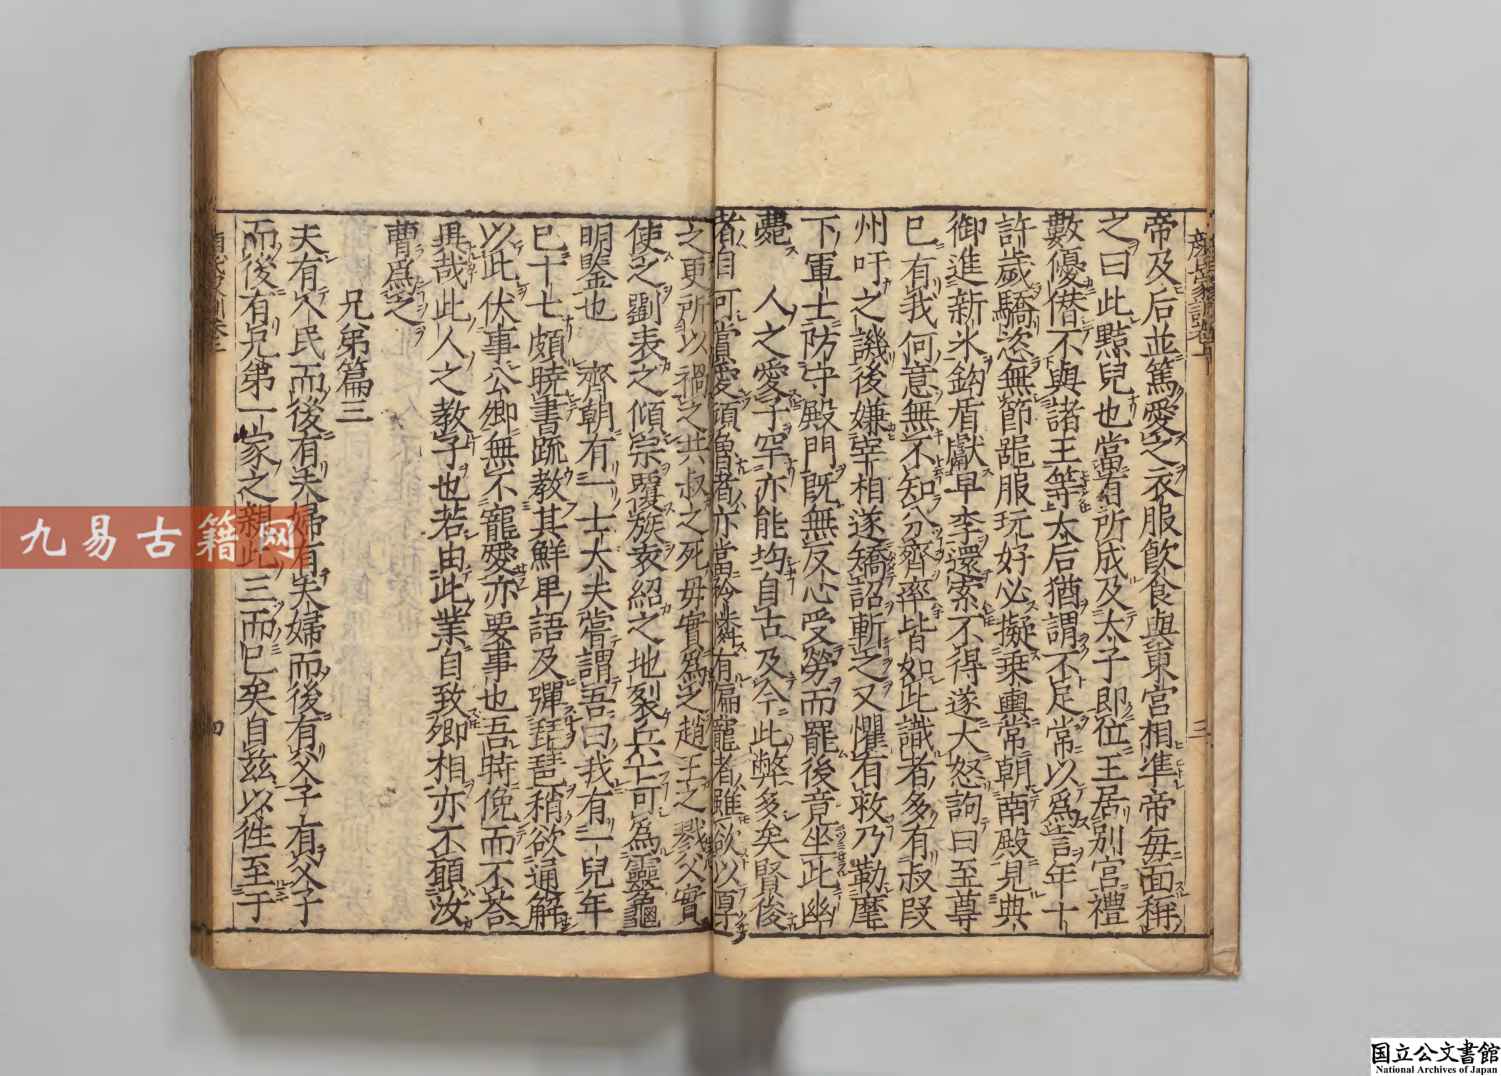 帝及后並篤愛之衣服飲食與東宮相準帝毎面稱
之曰此黠兒也當有所成及太子即位王居別宮禮
數優僣不與諸王等太后猶謂不足常以爲言年十
許歲驕恣無節噐服玩好必擬乗輿常朝南殿見典
御進新氷鈎盾獻早李還索不得遂大怒詢曰至尊
已有我何意無不知分齊率皆如此識者多有叔段
州吁之譏後嫌宰相遂矯詔斬之又懼有救乃勒麾
下軍士防守殿門既無反心受勞而罷後竟坐此幽
薨　人之愛子罕亦能均自古及今此弊多矣賢俊
者自可賞愛頑魯者亦當矜憐有偏寵者雖欲以厚
之更所以禍之共叔之死母實爲之趙王之戮父實
使之劉表之傾宗覆族袁紹之地裂兵亡可爲靈龜
明鑒也　齊朝有一士大夫甞謂吾曰我有一兒年
已十七頗曉書疏教其鮮卑語及彈琵琶稍欲通解
以此伏事公卿無不寵愛亦要事也吾時俛而不荅
異哉此人之教子也若由此業自致卿相亦不願汝
曹爲之
兄弟篇三
夫有人民而後有夫婦有夫婦而後有父子有父子
而後有兄弟一家之親此三而已矣自茲以徃至于
三
四
九易古籍网
国立公文書館
National Archives of Japan